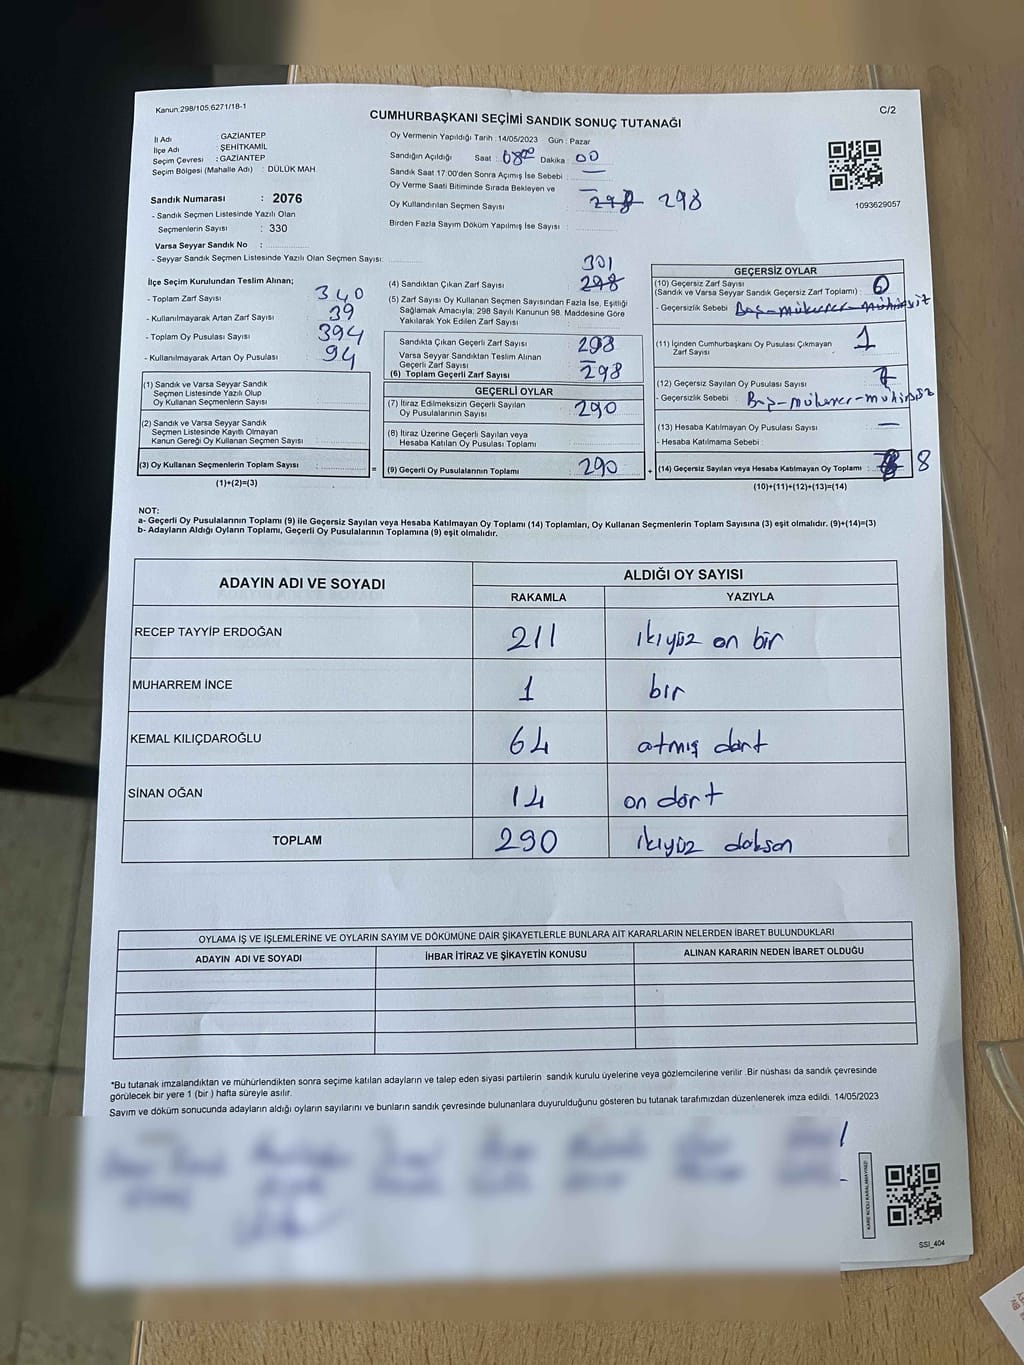 Kanun:298/105,6271/18-1
C/2
CUMHURBAŞKANI SEÇİMİ SANDIK SONUÇ TUTANAĞI
İl Adı : GAZİANTEP
İlçe Adı : ŞEHİTKAMİL
Seçim Çevresi : GAZİANTEP
Seçim Bölgesi (Mahalle Adı) : DÜLÜK MAH
Sandık Numarası : 2076
- Sandık Seçmen Listesinde Yazılı Olan
Seçmenlerin Sayısı : 330
Varsa Seyyar Sandık No :
- Seyyar Sandık Seçmen Listesinde Yazılı Olan Seçmen Sayısı:
Oy Vermenin Yapıldığı Tarih :14/05/2023 Gün : Pazar
Sandığın Açıldığı Saat : 08⁰⁰ Dakika : 00
Sandık Saat 17:00'den Sonra Açımış İse Sebebi : —
Oy Verme Saati Bitiminde Sırada Bekleyen ve
Oy Kullandırılan Seçmen Sayısı : 298 298
Birden Fazla Sayım Döküm Yapılmış İse Sayısı :
1093629057
İlçe Seçim Kurulundan Teslim Alınan;
- Toplam Zarf Sayısı 340
- Kullanılmayarak Artan Zarf Sayısı 39
- Toplam Oy Pusulası Sayısı 394
- Kullanılmayarak Artan Oy Pusulası 94
(1) Sandık ve Varsa Seyyar Sandık
Seçmen Listesinde Yazılı Olup
Oy Kullanan Seçmenlerin Sayısı :
(2) Sandık ve Varsa Seyyar Sandık
Seçmen Listesinde Kayıtlı Olmayan
Kanun Gereği Oy Kullanan Seçmen Sayısı :
(3) Oy Kullanan Seçmenlerin Toplam Sayısı : =
(1)+(2)=(3)
301
(4) Sandıktan Çıkan Zarf Sayısı : 298
(5) Zarf Sayısı Oy Kullanan Seçmen Sayısından Fazla İse, Eşitliği
Sağlamak Amacıyla; 298 Sayılı Kanunun 98. Maddesine Göre
Yakılarak Yok Edilen Zarf Sayısı :
Sandıkta Çıkan Geçerli Zarf Sayısı : 298
Varsa Seyyar Sandıktan Teslim Alınan
Geçerli Zarf Sayısı : —
(6) Toplam Geçerli Zarf Sayısı : 298
GEÇERLİ OYLAR
(7) İtiraz Edilmeksizin Geçerli Sayılan
Oy Pusulalarının Sayısı : 290
(8) İtiraz Üzerine Geçerli Sayılan veya
Hesaba Katılan Oy Pusulası Toplamı :
(9) Geçerli Oy Pusulalarının Toplamı : 290 +
GEÇERSİZ OYLAR
(10) Geçersiz Zarf Sayısı
(Sandık ve Varsa Seyyar Sandık Geçersiz Zarf Toplamı) : 0
- Geçersizlik Sebebi : Boş-mükerrer-mühürsüz
(11) İçinden Cumhurbaşkanı Oy Pusulası Çıkmayan
Zarf Sayısı : 1
(12) Geçersiz Sayılan Oy Pusulası Sayısı : 7
- Geçersizlik Sebebi : Boş-mükerrer-mühürsüz
(13) Hesaba Katılmayan Oy Pusulası Sayısı : —
- Hesaba Katılmama Sebebi :
(14) Geçersiz Sayılan veya Hesaba Katılmayan Oy Toplamı : 8
(10)+(11)+(12)+(13)=(14)
NOT:
a- Geçerli Oy Pusulalarının Toplamı (9) ile Geçersiz Sayılan veya Hesaba Katılmayan Oy Toplamı (14) Toplamları, Oy Kullanan Seçmenlerin Toplam Sayısına (3) eşit olmalıdır. (9)+(14)=(3)
b- Adayların Aldığı Oyların Toplamı, Geçerli Oy Pusulalarının Toplamına (9) eşit olmalıdır.
ADAYIN ADI VE SOYADI ALDIĞI OY SAYISI
RAKAMLA YAZIYLA
RECEP TAYYİP ERDOĞAN 211 ikiyüz on bir
MUHARREM İNCE 1 bir
KEMAL KILIÇDAROĞLU 64 atmış dört
SİNAN OĞAN 14 on dört
TOPLAM 290 ikiyüz doksan
OYLAMA İŞ VE İŞLEMLERİNE VE OYLARIN SAYIM VE DÖKÜMÜNE DAİR ŞİKAYETLERLE BUNLARA AİT KARARLARIN NELERDEN İBARET BULUNDUKLARI
ADAYIN ADI VE SOYADI İHBAR İTİRAZ VE ŞİKAYETİN KONUSU ALINAN KARARIN NEDEN İBARET OLDUĞU
*Bu tutanak imzalandıktan ve mühürlendikten sonra seçime katılan adayların ve talep eden siyasi partilerin sandık kurulu üyelerine veya gözlemcilerine verilir .Bir nüshası da sandık çevresinde
görülecek bir yere 1 (bir ) hafta süreyle asılır.
Sayım ve döküm sonucunda adayların aldığı oyların sayılarını ve bunların sandık çevresinde bulunanlara duyurulduğunu gösteren bu tutanak tarafımızdan düzenlenerek imza edildi. 14/05/2023
KARE KODU KARALAMAYINIZ!
SSI_404